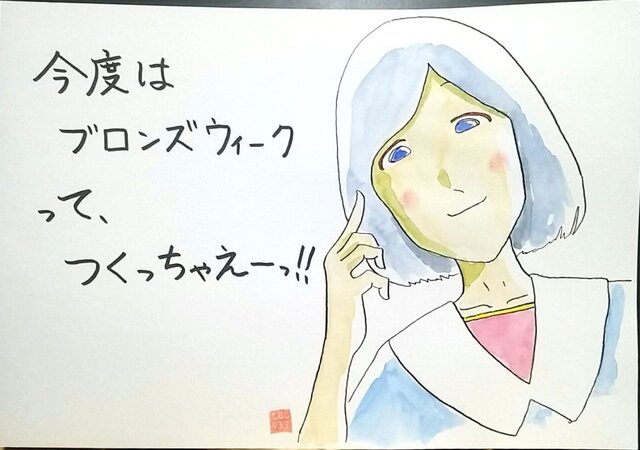 今度は
ブロンズウィーク
って、
つくっちゃえーっ!!